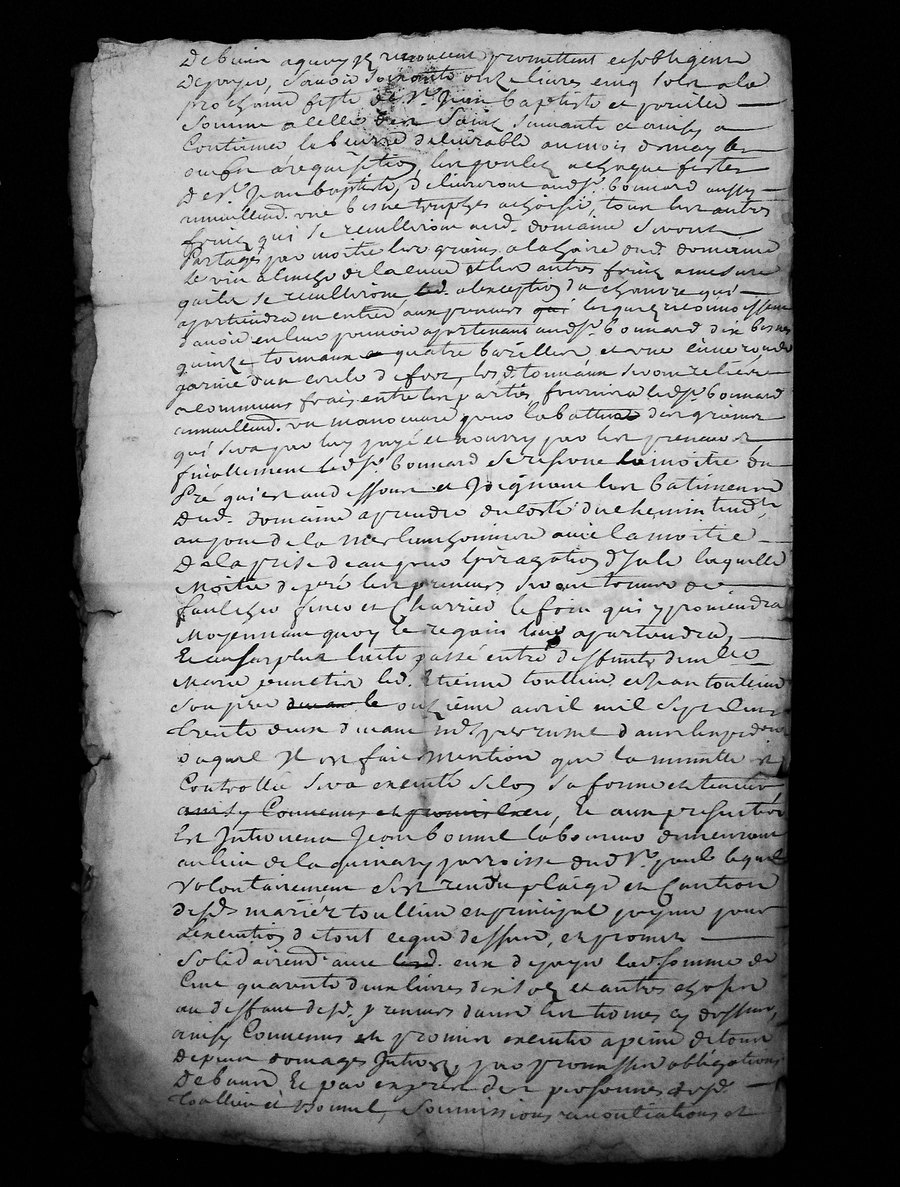 De bien a quoy ils renoncent promettent et sobligent
De payer, Savoir soixante onze livres cinq sols a la
prochaine feste de St Jean baptiste et pareille
Somme a celle des Saint suivante et ainsy a
Continuer le beurre delivrable au mois de may
ou bn a requisition, les poulets a chaque festes
de St Jean Baptiste, delivreront aud Sr bonnard aussy
annuellemt. une besne truphes a choisir, tous les autres
fruits qui se recuilliront aud. domaine seront
Partagés par moitie les grains a laire dud. domaine
Le vin a lanche de la cuve et les autres fruits a mesure
quils se recuilliront led. a lexception du chanvre qui
apartiendra en entier aux preneurs qui lesquels reconnoissent
davoir en leur pouvoir apartenant aud Sr bonnard dix besnes
quinze tonneaux quatre barilles et une cuve ronde
garnie dun cercle de fer, les d. tonneaux seront reliés
a communs frais entre les parties, fournira led Sr bonnard
annuellemt. un manoeuvre pour la battue des grains
qui sera par luy payé et nourry par les preneurs
finallement led Sr bonnard se reserve la moitie du
Pré qui est au dessous et Joignant les batiments
dud. domaine a prendre du costé du chemin tendt
au pont de la avec la moitie
De la prise deau pour lirrigation dycelle laquelle
Moitie de pré les preneurs seront tenus de
faucher fener et Charrier le foin qui y proviendra
Moyennant quoy le regain leur apartiendra,
Et au surplus lacte passé entre deffunte
Marie led. Etienne toullieu et Jean toullieu
Son pere devant le onzieme avril mil sept cent
trente deux devant me
Duquel Il est fait mention que la minutte est
Controllée sera executé selon sa forme et teneur
ainsy Convenus et promis tenir, Et aux presentes
Est Intervenu Jean bonnel laboureur demeurant
au lieu de la parroisse dud St paul lequel
Volontairement Sest rendu plaige et Caution
desd mariez toullieu en principal payeur pour
Lexecution de tout ceque dessus, et promis
Solidairemt avec lesd. eux de payer lad somme de
Cent quarante deux livres dix sols et autres choses
au deffaut desd. preneurs dans les termes cy dessus,
ainsy Convenus et promis executer a peine de tous
depens domages Interets, par promesses obligations
De biens Et par exprès des personnes desd
toullieu et bonnel, Soumissions renontiations et